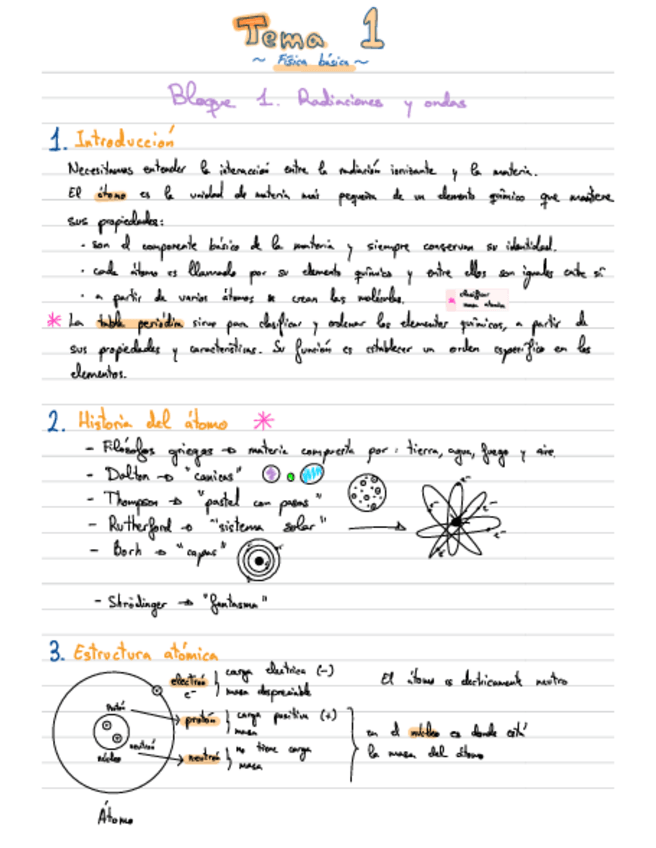 Tema 1
~ Física básica ~
Bloque 1. Radiaciones y ondas
1. Introducción
Necesitamos entender la interacción entre la radiación ionizante y la materia.
El átomo es la unidad de materia más pequeña de un elemento químico que mantiene
sus propiedades:
· son el componente básico de la materia y siempre conservan su identidad.
· cada átomo es llamado por su elemento químico y entre ellos son iguales entre sí
· a partir de varios átomos se crean las moléculas.
* clasificar
masa atómica
* La tabla periódica sirve para clasificar y ordenar los elementos químicos, a partir de
sus propiedades y características. Su función es establecer un orden específico en los
elementos.
2. Historia del átomo *
- Filósofos griegos → materia compuesta por: tierra, agua, fuego y aire.
- Dalton → "canicas"
- Thompson → "pastel con pasas"
- Rutherford → "sistema solar"
- Borh → "capas"
e-
e-
e-
e-
- Strödinger → "fantasma"
3. Estructura atómica
electrón
e-
carga eléctrica (-)
masa despreciable
El átomo es eléctricamente neutro
protón
neutrón
núcleo
protón
carga positiva (+)
masa
neutrón
no tiene carga
masa
en el núcleo es donde está
la masa del átomo
Átomo